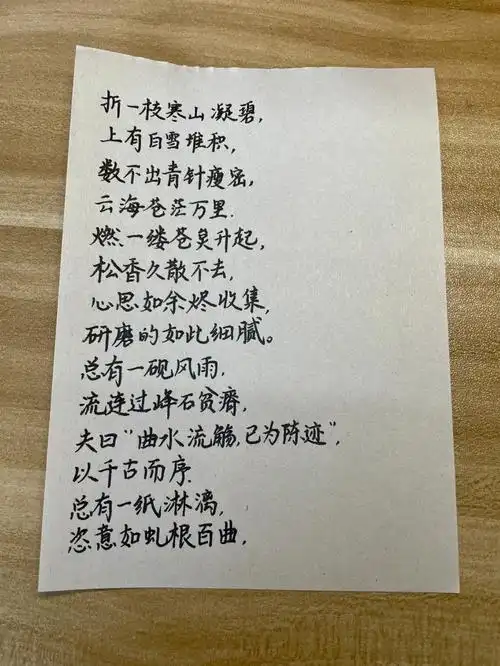 折一枝寒山凝碧，
上有白雪堆积，
数不出青针瘦密，
云海苍茫万里.
燃一缕苍炱升起，
松香久散不去，
心思如余烬收集，
研磨的如此细腻。
总有一砚风雨，
流连过峰石贫瘠，
夫曰“曲水流觞，已为陈迹”，
以千古而序.
总有一纸淋漓，
恣意如虬根百曲，